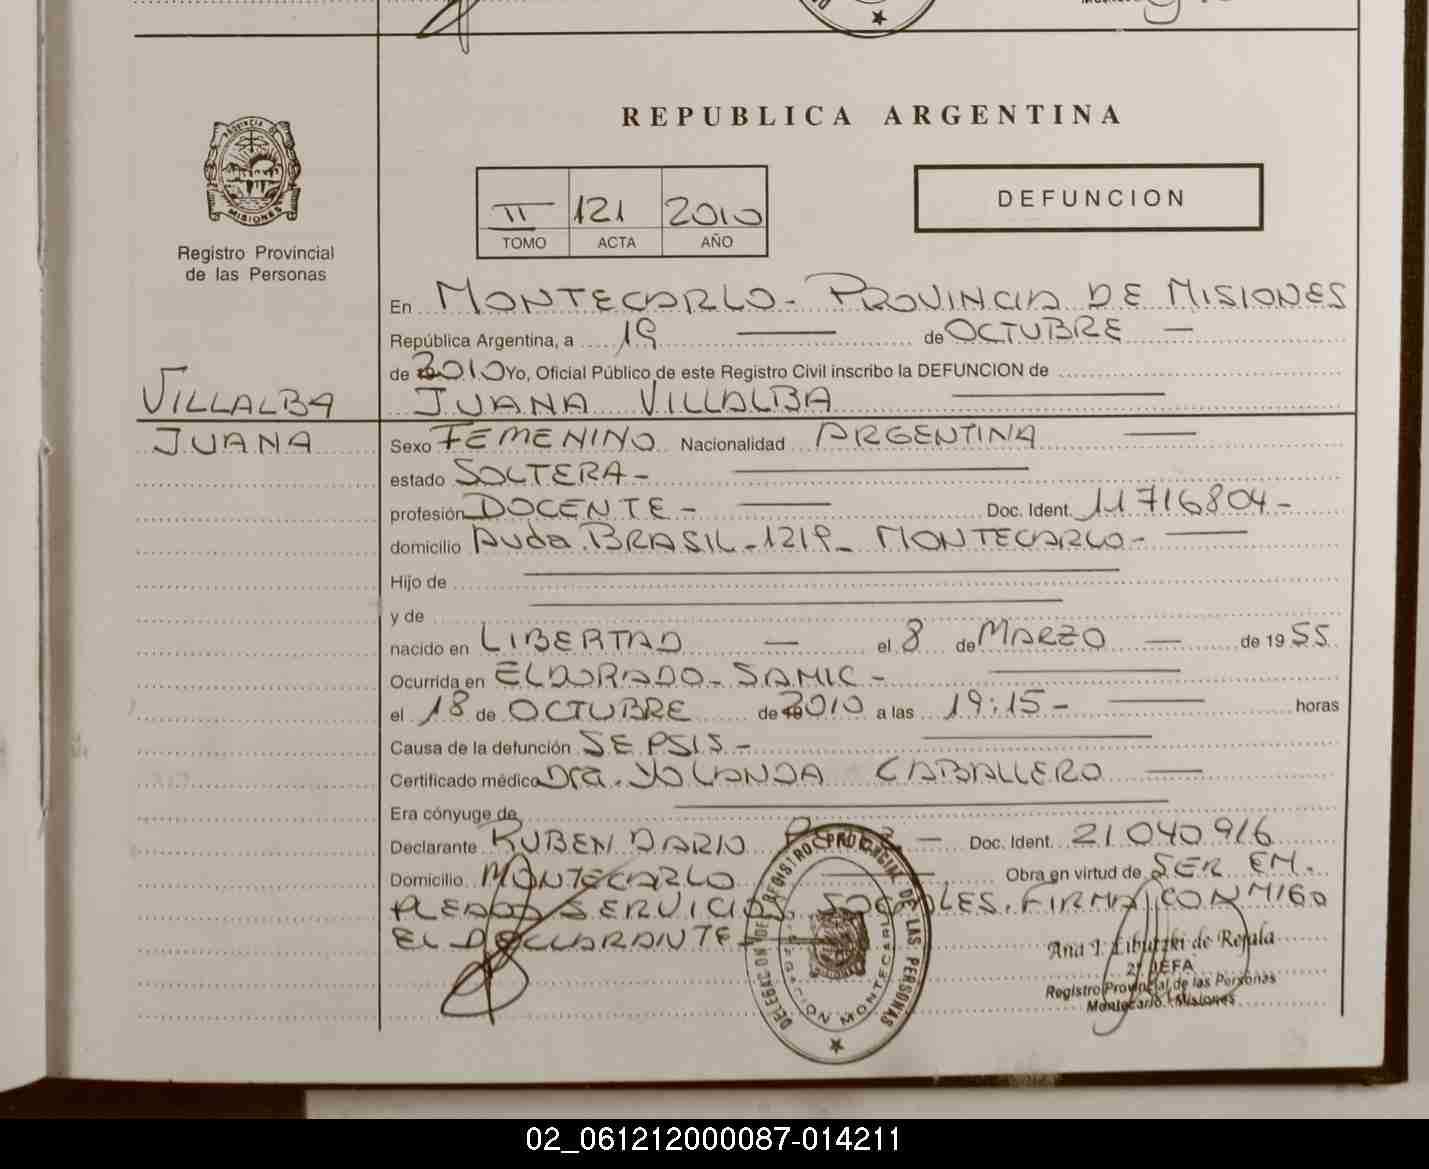 REPUBLICA ARGENTINA
PROVINCIA DE
MISIONES
Registro Provincial
de las Personas
II 121 2010
TOMO ACTA AÑO
DEFUNCION
En MONTECARLO - PROVINCIA DE MISIONES
República Argentina, a 19 de OCTUBRE -
de 2010 Yo, Oficial Público de este Registro Civil inscribo la DEFUNCION de
VILLALBA
JUANA VILLALBA
JUANA
Sexo FEMENINO Nacionalidad ARGENTINA
estado SOLTERA -
profesión DOCENTE - Doc. Ident. 11716804 -
domicilio Avda. BRASIL - 1219 - MONTECARLO -
Hijo de
y de
nacido en LIBERTAD - el 8 de MARZO - de 1955
Ocurrida en ELDORADO - SAMIC -
el 18 de OCTUBRE de 2010 a las 19:15 - horas
Causa de la defunción SEPSIS -
Certificado médico Dra. YOLANDA CABALLERO
Era cónyuge de
Declarante RUBEN DARIO - Doc. Ident. 21040916
Domicilio MONTECARLO Obra en virtud de SER EM.
PLEADO SERVICIOS SOCIALES. FIRMA CONMIGO
EL DECLARANTE
DELEGACION DEL REGISTRO PROVINCIAL DE LAS PERSONAS
DELEGACION MONTECARLO
Ana I. de
2° JEFA
Registro Provincial de las Personas
Montecarlo - Misiones
02_061212000087-014211